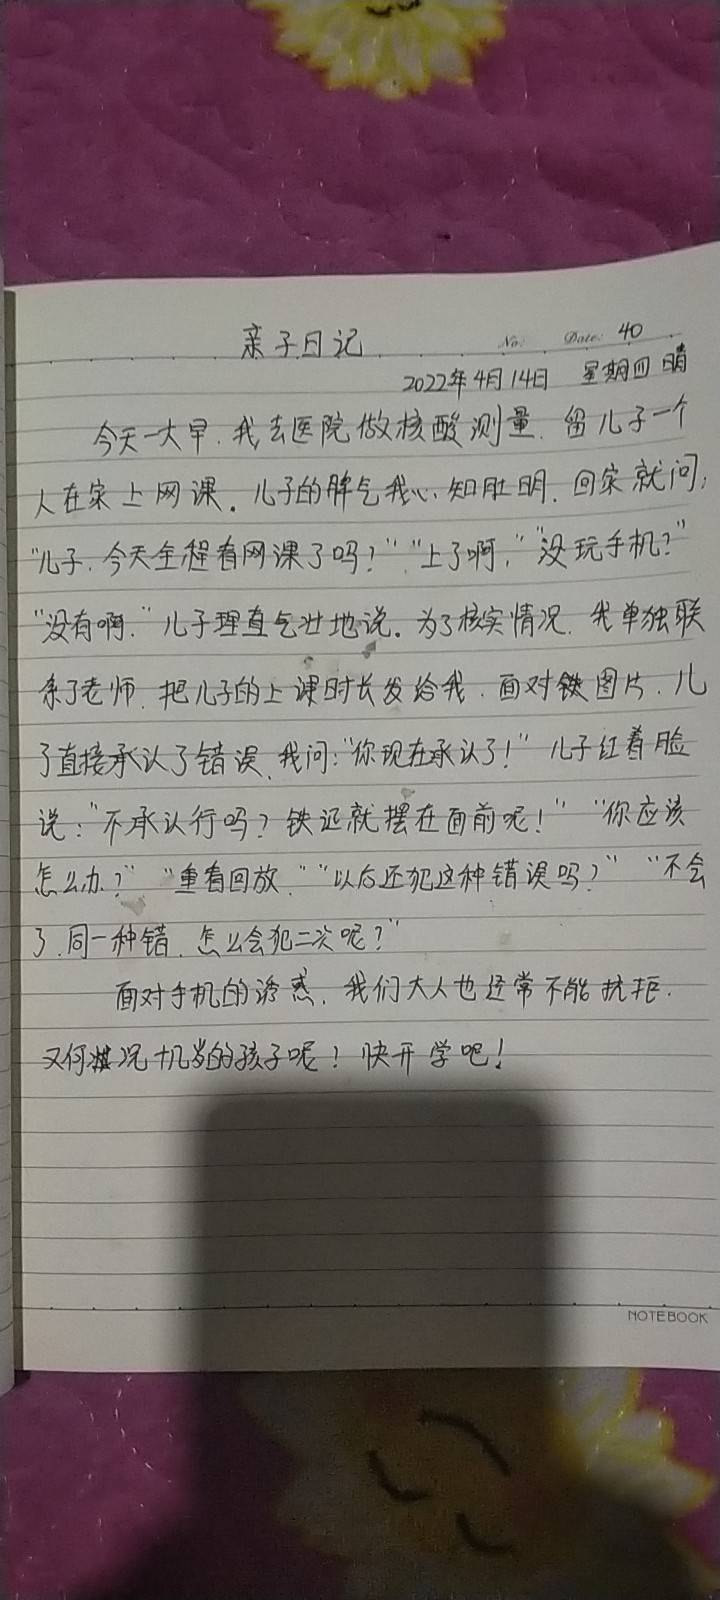 亲子日记
No: Date: 40
2022年4月14日 星期四 晴
今天一大早,我去医院做核酸测量,留儿子一个
人在家上网课。儿子的脾气我心知肚明,回家就问:
"儿子,今天全程看网课了吗?""上了啊,""没玩手机?"
"没有啊,"儿子理直气壮地说。为了核实情况,我单独联
系了老师,把儿子的上课时长发给我,面对铁图片,儿
子直接承认了错误,我问:"你现在承认了!"儿子红着脸
说:"不承认行吗?铁证就摆在面前呢!""你应该
怎么办?""重看回放,""以后还犯这种错误吗?""不会
了,同一种错,怎么会犯二次呢?"
面对手机的诱惑,我们大人也经常不能抗拒,
又何况十几岁的孩子呢!快开学吧!
NOTEBOOK